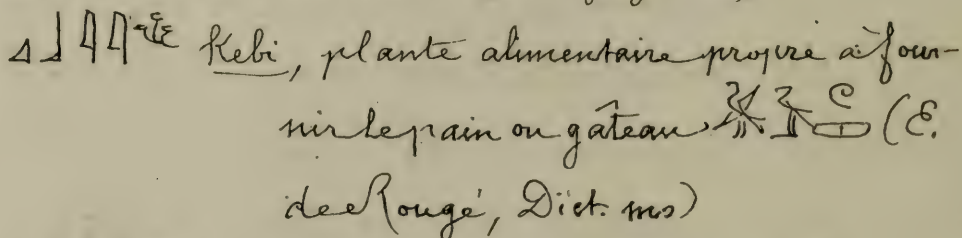 𓈎𓃀𓇋𓇋𓆰 Kebi, plante alimentaire propre à four-
nir le pain ou gâteau (E.
de Rougé, Dict. ms)